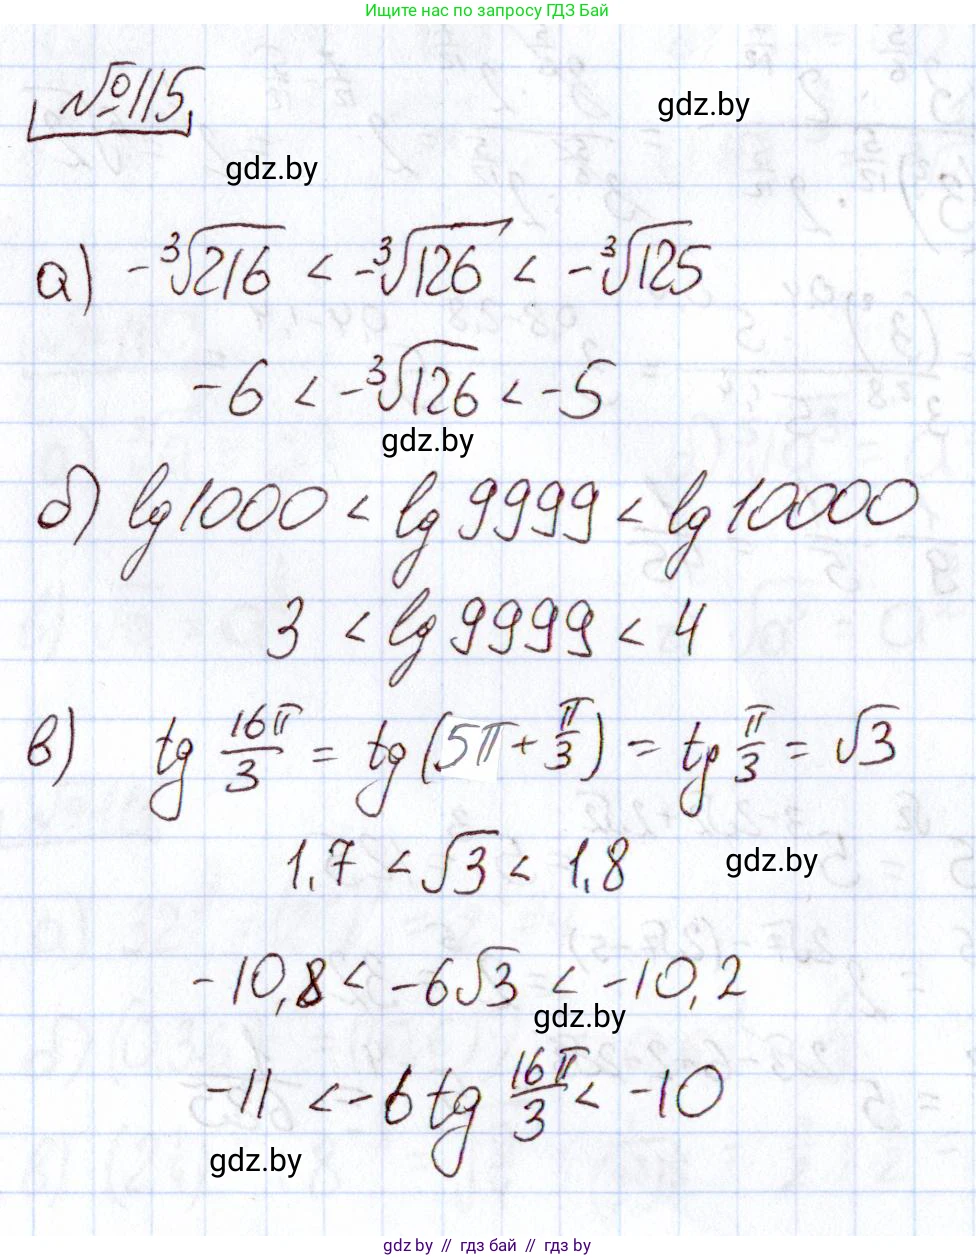 Ищите нас по запросу ГДЗ Бай
№115
gdz.by
gdz.by
а) -∛216 < -∛126 < -∛125
-6 < -∛126 < -5
gdz.by
б) lg 1000 < lg 9999 < lg 10000
3 < lg 9999 < 4
в) tg 16π/3 = tg (5π + π/3) = tg π/3 = √3
1,7 < √3 < 1,8
gdz.by
-10,8 < -6√3 < -10,2
gdz.by
-11 < -6 tg 16π/3 < -10
gdz.by
gdz by // гдз бай // гдз by